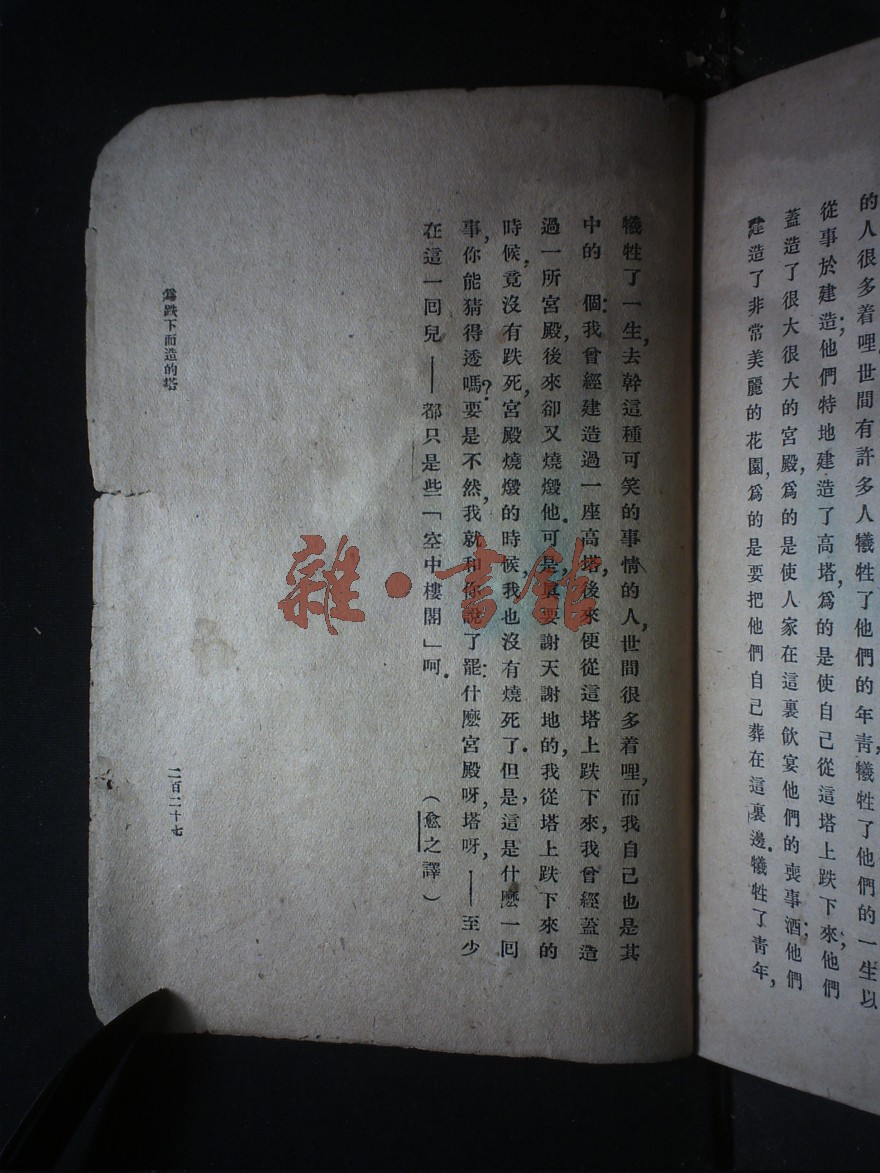 的人很多着哩，世間有許多人犧牲了他們的年靑，犧牲了他們的一生以
從事於建造；他們特地建造了高塔，爲的是使自己從這塔上跌下來；他們
蓋造了很大很大的宮殿，爲的是使人家在這裏飮宴他們的喪事酒；他們
建造了非常美麗的花園，爲的是要把他們自己葬在這裏邊。犧牲了靑年，
犧牲了一生，去幹這種可笑的事情的人，世間很多着哩，而我自己也是其
中的 個：我曾經建造過一座高塔，後來便從這塔上跌下來，我曾經蓋造
過一所宮殿，後來卻又燒燬他。可是，眞要謝天謝地的，我從塔上跌下來的
時候，竟沒有跌死，宮殿燒燬的時候，我也沒有燒死了。但是，這是什麽一囘
事，你能猜得透嗎？要是不然，我就和你說了罷：什麽宮殿呀，塔呀，——至少
在這一囘兒——都只是些「空中樓閣」呵。
（愈之譯）
爲跌下而造的塔
二百二十七
雜·書館